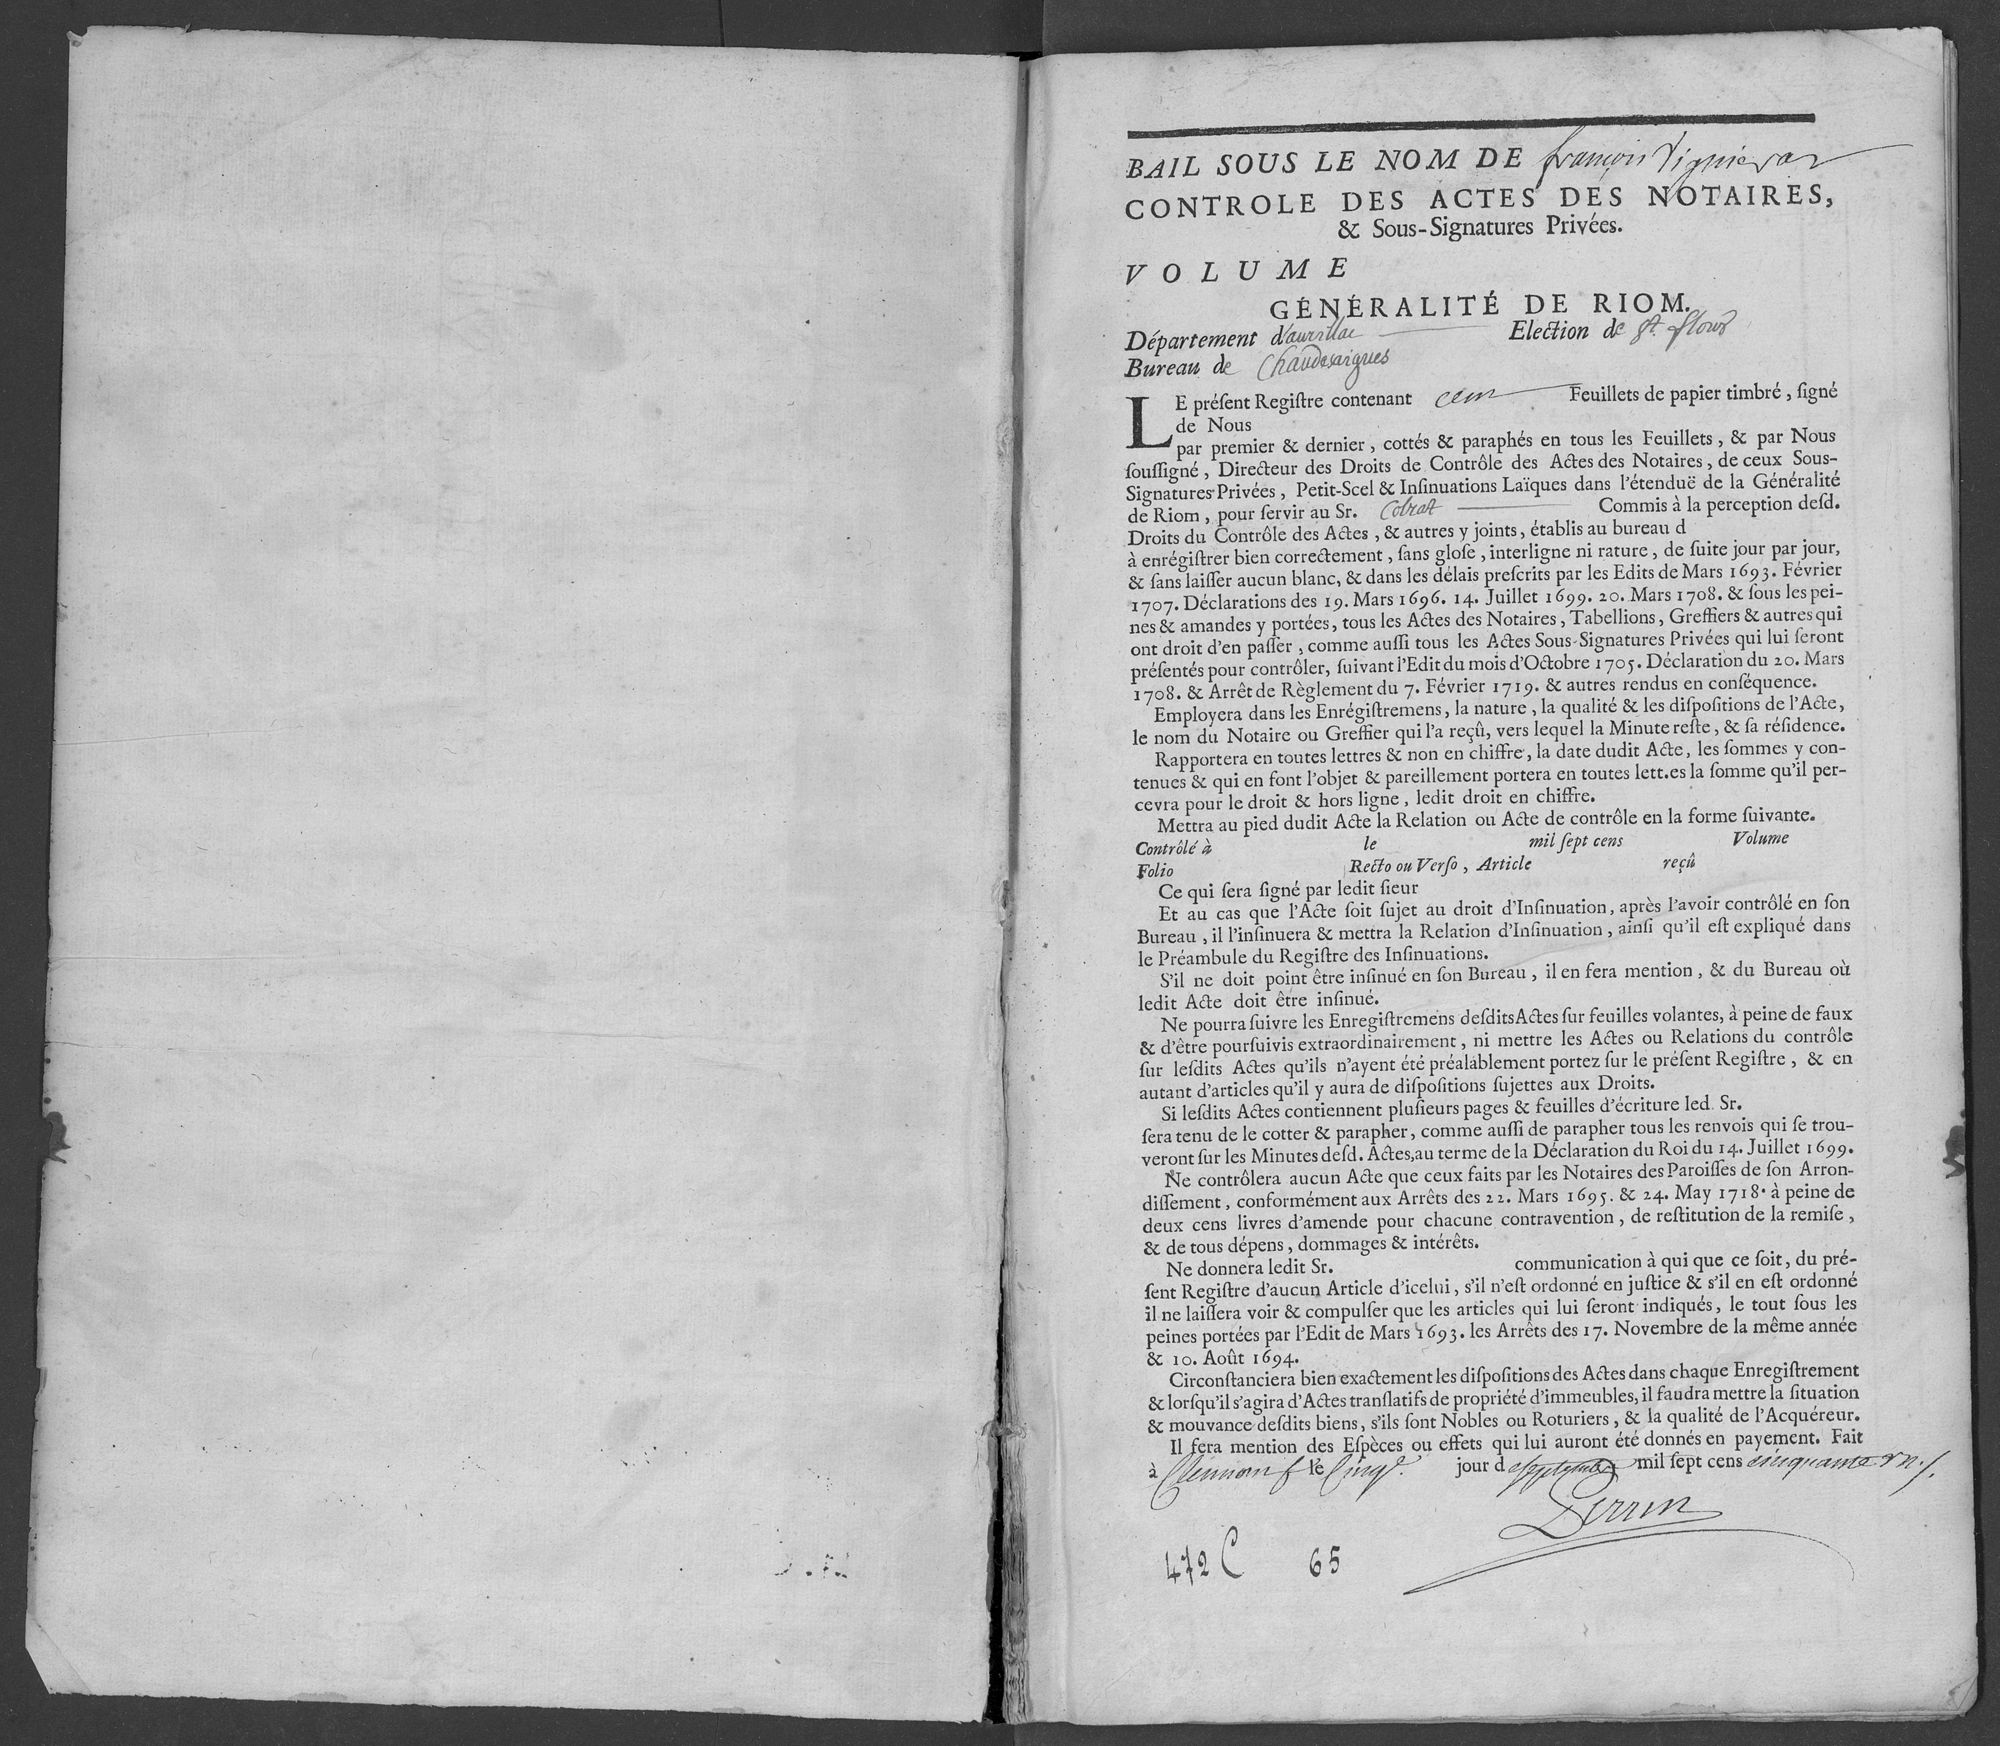 BAIL SOUS LE NOM DE françois
CONTROLE DES ACTES DES NOTAIRES,
& Sous-Signatures Privées.
VOLUME
GÉNÉRALITÉ DE RIOM.
Département d'aurillac Election de st. flour
Bureau de Chaudesaigues
LE préſent Regiſtre contenant cent Feuillets de papier timbré, ſigné
de Nous
par premier & dernier, cottés & paraphés en tous les Feuillets, & par Nous
ſouſſigné, Directeur des Droits de Contrôle des Actes des Notaires, de ceux Sous-
Signatures Privées, Petit-Scel & Inſinuations Laïques dans l'étenduë de la Généralité
de Riom, pour ſervir au Sr. Colrat Commis à la perception deſd.
Droits du Contrôle des Actes, & autres y joints, établis au bureau d
à enrégiſtrer bien correctement, ſans gloſe, interligne ni rature, de ſuite jour par jour,
& ſans laiſſer aucun blanc, & dans les délais preſcrits par les Edits de Mars 1693. Février
1707. Déclarations des 19. Mars 1696. 14. Juillet 1699. 20. Mars 1708. & ſous les pei-
nes & amandes y portées, tous les Actes des Notaires, Tabellions, Greffiers & autres qui
ont droit d'en paſſer, comme auſſi tous les Actes Sous-Signatures Privées qui lui ſeront
préſentés pour contrôler, ſuivant l'Edit du mois d'Octobre 1705. Déclaration du 20. Mars
1708. & Arrêt de Règlement du 7. Février 1719. & autres rendus en conſéquence.
Employera dans les Enrégiſtremens, la nature, la qualité & les diſpoſitions de l'Acte,
le nom du Notaire ou Greffier qui l'a reçû, vers lequel la Minute reſte, & ſa réſidence.
Rapportera en toutes lettres & non en chiffre, la date dudit Acte, les ſommes y con-
tenues & qui en font l'objet & pareillement portera en toutes lett.es la ſomme qu'il per-
cevra pour le droit & hors ligne, ledit droit en chiffre.
Mettra au pied dudit Acte la Relation ou Acte de contrôle en la forme ſuivante.
Contrôlé à le mil ſept cens Volume
Folio Recto ou Verſo, Article reçû
Ce qui ſera ſigné par ledit ſieur
Et au cas que l'Acte ſoit ſujet au droit d'Inſinuation, après l'avoir contrôlé en ſon
Bureau, il l'inſinuera & mettra la Relation d'Inſinuation, ainſi qu'il eſt expliqué dans
le Préambule du Regiſtre des Inſinuations.
S'il ne doit point être inſinué en ſon Bureau, il en fera mention, & du Bureau où
ledit Acte doit être inſinué.
Ne pourra ſuivre les Enregiſtremens deſdits Actes ſur feuilles volantes, à peine de faux
& d'être pourſuivis extraordinairement, ni mettre les Actes ou Relations du contrôle
ſur leſdits Actes qu'ils n'ayent été préalablement portez ſur le préſent Regiſtre, & en
autant d'articles qu'il y aura de diſpoſitions ſujettes aux Droits.
Si leſdits Actes contiennent pluſieurs pages & feuilles d'écriture led. Sr.
ſera tenu de le cotter & parapher, comme auſſi de parapher tous les renvois qui ſe trou-
veront ſur les Minutes deſd. Actes, au terme de la Déclaration du Roi du 14. Juillet 1699.
Ne contrôlera aucun Acte que ceux faits par les Notaires des Paroiſſes de ſon Arron-
diſſement, conformément aux Arrêts des 22. Mars 1695. & 24. May 1718. à peine de
deux cens livres d'amende pour chacune contravention, de reſtitution de la remiſe,
& de tous dépens, dommages & intérêts.
Ne donnera ledit Sr. communication à qui que ce ſoit, du pré-
ſent Regiſtre d'aucun Article d'icelui, s'il n'eſt ordonné en juſtice & s'il en eſt ordonné
il ne laiſſera voir & compulſer que les articles qui lui ſeront indiqués, le tout ſous les
peines portées par l'Edit de Mars 1693. les Arrêts des 17. Novembre de la même année
& 10. Août 1694.
Circonſtanciera bien exactement les diſpoſitions des Actes dans chaque Enregiſtrement
& lorſqu'il s'agira d'Actes tranſlatifs de propriété d'immeubles, il faudra mettre la ſituation
& mouvance deſdits biens, s'ils ſont Nobles ou Roturiers, & la qualité de l'Acquéreur.
Il fera mention des Eſpèces ou effets qui lui auront été donnés en payement. Fait
à Clermont le cinqe. jour de septembre mil ſept cens cinquante un
Perrin
472 C 65